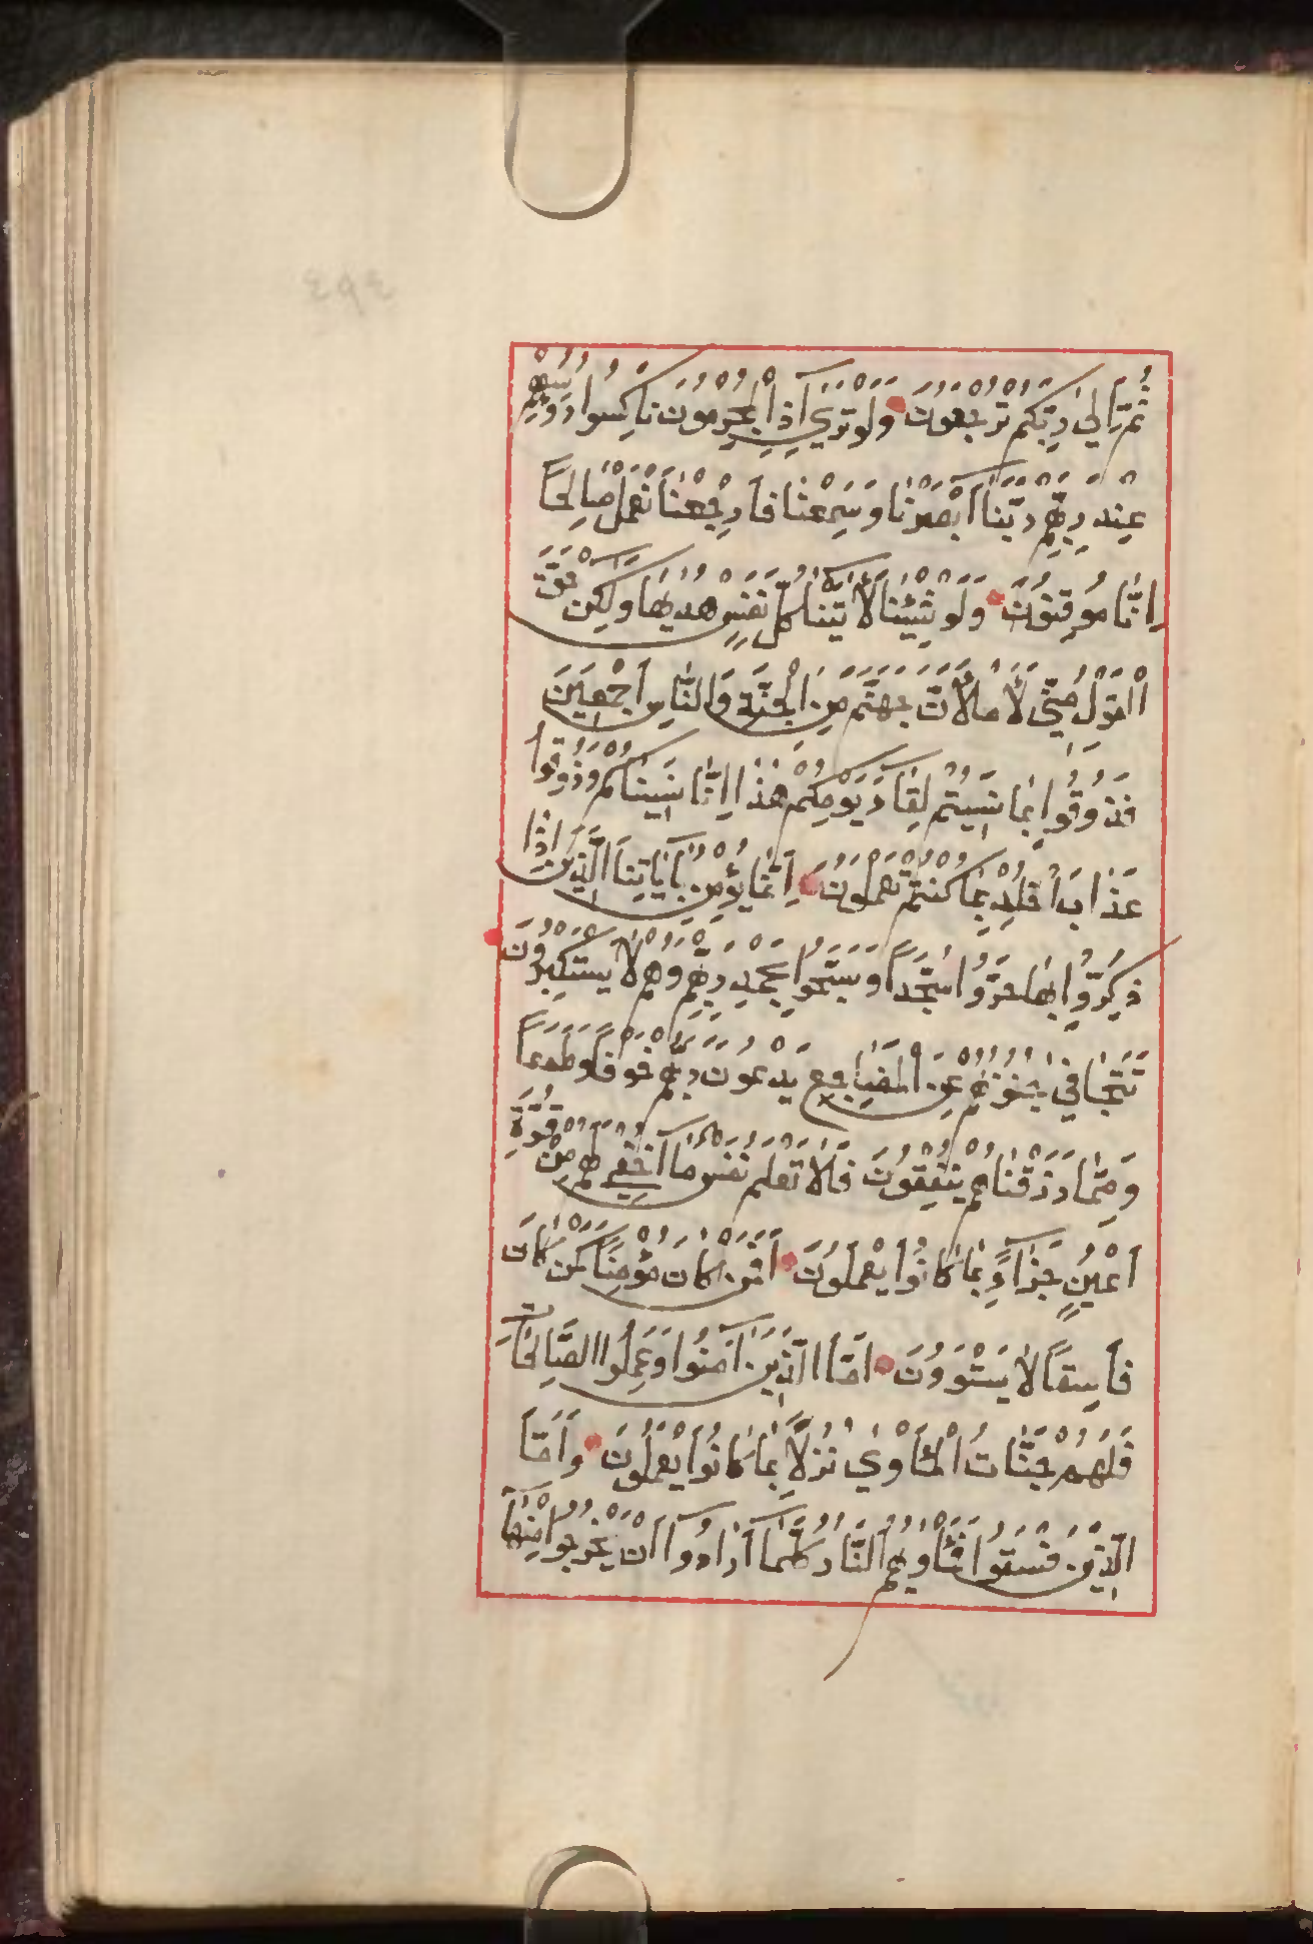 ثُمَّ إِلَىٰ رَبِّكُمْ تُرْجَعُونَ وَلَوْ تَرَىٰ إِذِ الْمُجْرِمُونَ نَاكِسُوا رُءُوسِهِمْ
عِنْدَ رَبِّهِمْ رَبَّنَا أَبْصَرْنَا وَسَمِعْنَا فَارْجِعْنَا نَعْمَلْ صَالِحًا
إِنَّا مُوقِنُونَ وَلَوْ شِئْنَا لَأَتَيْنَا كُلَّ نَفْسٍ هُدَيٰهَا وَلَكِنْ حَقَّ
الْقَوْلُ مِنِّي لَأَمْلَأَنَّ جَهَنَّمَ مِنَ الْجِنَّةِ وَالنَّاسِ أَجْمَعِينَ
فَذُوقُوا بِمَا نَسِيتُمْ لِقَاءَ يَوْمِكُمْ هَذَا إِنَّا نَسِينَاكُمْ وَذُوقُوا
عَذَابَ الْخُلْدِ بِمَا كُنْتُمْ تَعْمَلُونَ إِنَّمَا يُؤْمِنُ بِآيَاتِنَا الَّذِينَ إِذَا
ذُكِّرُوا بِهَا خَرُّوا سُجَّدًا وَسَبَّحُوا بِحَمْدِ رَبِّهِمْ وَهُمْ لَا يَسْتَكْبِرُونَ
تَتَجَافَىٰ جُنُوبُهُمْ عَنِ الْمَضَاجِعِ يَدْعُونَ رَبَّهُمْ خَوْفًا وَطَمَعًا
وَمِمَّا رَزَقْنَاهُمْ يُنْفِقُونَ فَلَا تَعْلَمُ نَفْسٌ مَا أُخْفِيَ لَهُمْ مِنْ قُرَّةِ
أَعْيُنٍ جَزَاءً بِمَا كَانُوا يَعْمَلُونَ أَفَمَنْ كَانَ مُؤْمِنًا كَمَنْ كَانَ
فَاسِقًا لَا يَسْتَوُونَ أَمَّا الَّذِينَ آمَنُوا وَعَمِلُوا الصَّالِحَاتِ
فَلَهُمْ جَنَّاتُ الْمَأْوَىٰ نُزُلًا بِمَا كَانُوا يَعْمَلُونَ وَأَمَّا
الَّذِينَ فَسَقُوا فَمَأْوٰيهُمُ النَّارُ كُلَّمَا أَرَادُوا أَنْ يَخْرُجُوا مِنْهَا